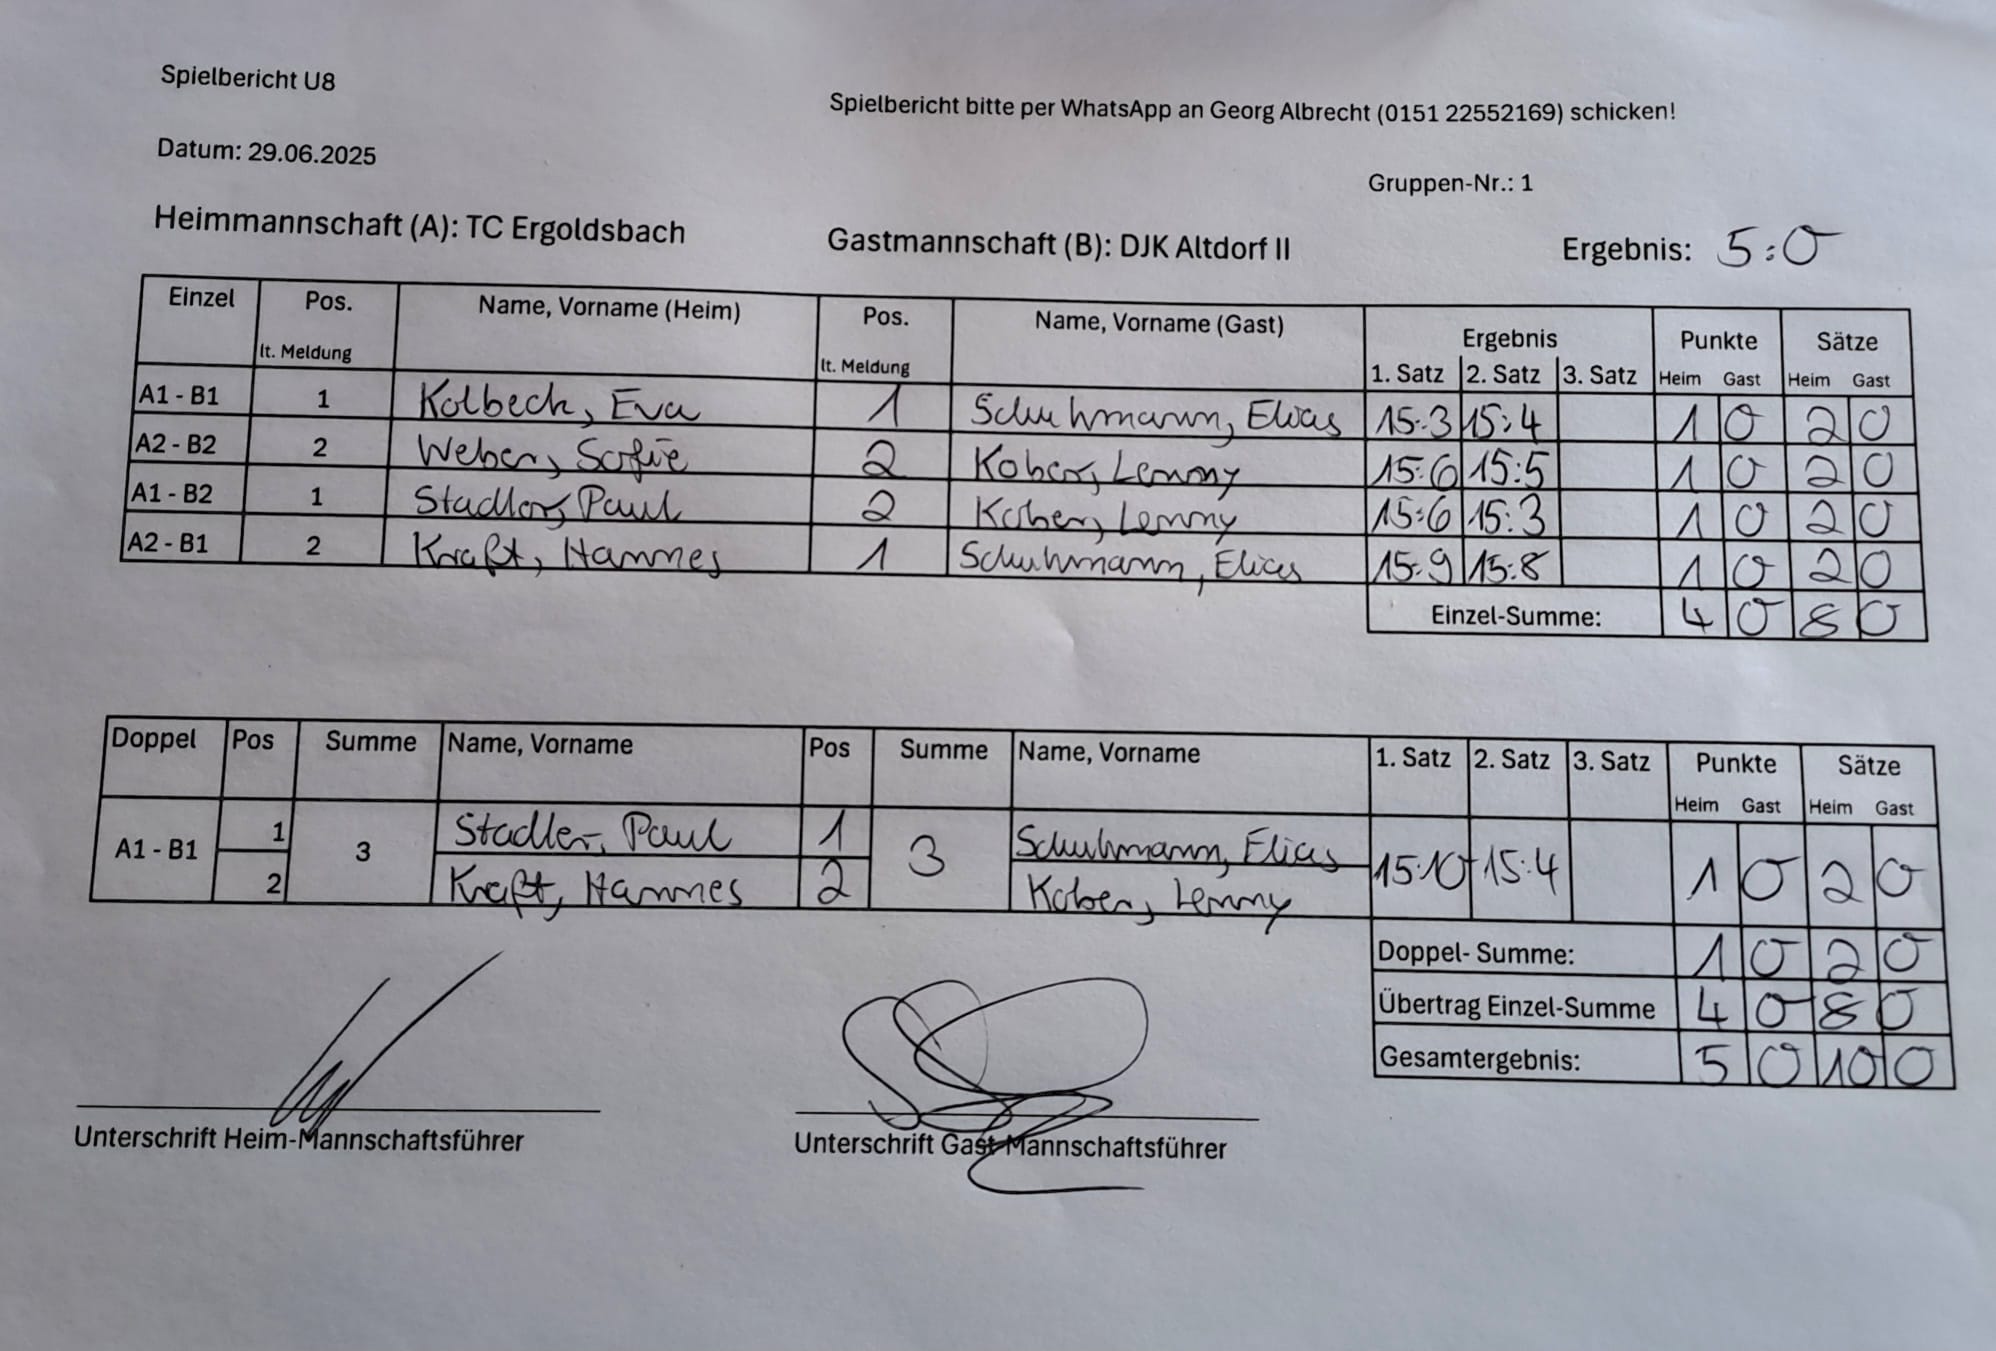 Spielbericht U8
Spielbericht bitte per WhatsApp an Georg Albrecht (0151 22552169) schicken!
Datum: 29.06.2025
Gruppen-Nr.: 1
Heimmannschaft (A): TC Ergoldsbach Gastmannschaft (B): DJK Altdorf II Ergebnis: 5:0
Einzel Pos. Name, Vorname (Heim) Pos. Name, Vorname (Gast) Ergebnis Punkte Sätze
lt. Meldung lt. Meldung 1. Satz 2. Satz 3. Satz Heim Gast Heim Gast
A1 - B1 1 Kolbeck, Eva 1 Schuhmann, Elias 15:3 15:4 1 0 2 0
A2 - B2 2 Weber, Sofie 2 Kober, Lemmy 15:6 15:5 1 0 2 0
A1 - B2 1 Stadler, Paul 2 Kober, Lemmy 15:6 15:3 1 0 2 0
A2 - B1 2 Kraft, Hannes 1 Schuhmann, Elias 15:9 15:8 1 0 2 0
Einzel-Summe: 4 0 8 0
Doppel Pos Summe Name, Vorname Pos Summe Name, Vorname 1. Satz 2. Satz 3. Satz Punkte Sätze
Heim Gast Heim Gast
A1 - B1 1 3 Stadler, Paul 1 3 Schuhmann, Elias 15:10 15:4 1 0 2 0
2 Kraft, Hannes 2 Kober, Lemmy
Doppel- Summe: 1 0 2 0
Übertrag Einzel-Summe 4 0 8 0
Gesamtergebnis: 5 0 10 0
Unterschrift Heim-Mannschaftsführer Unterschrift Gast-Mannschaftsführer